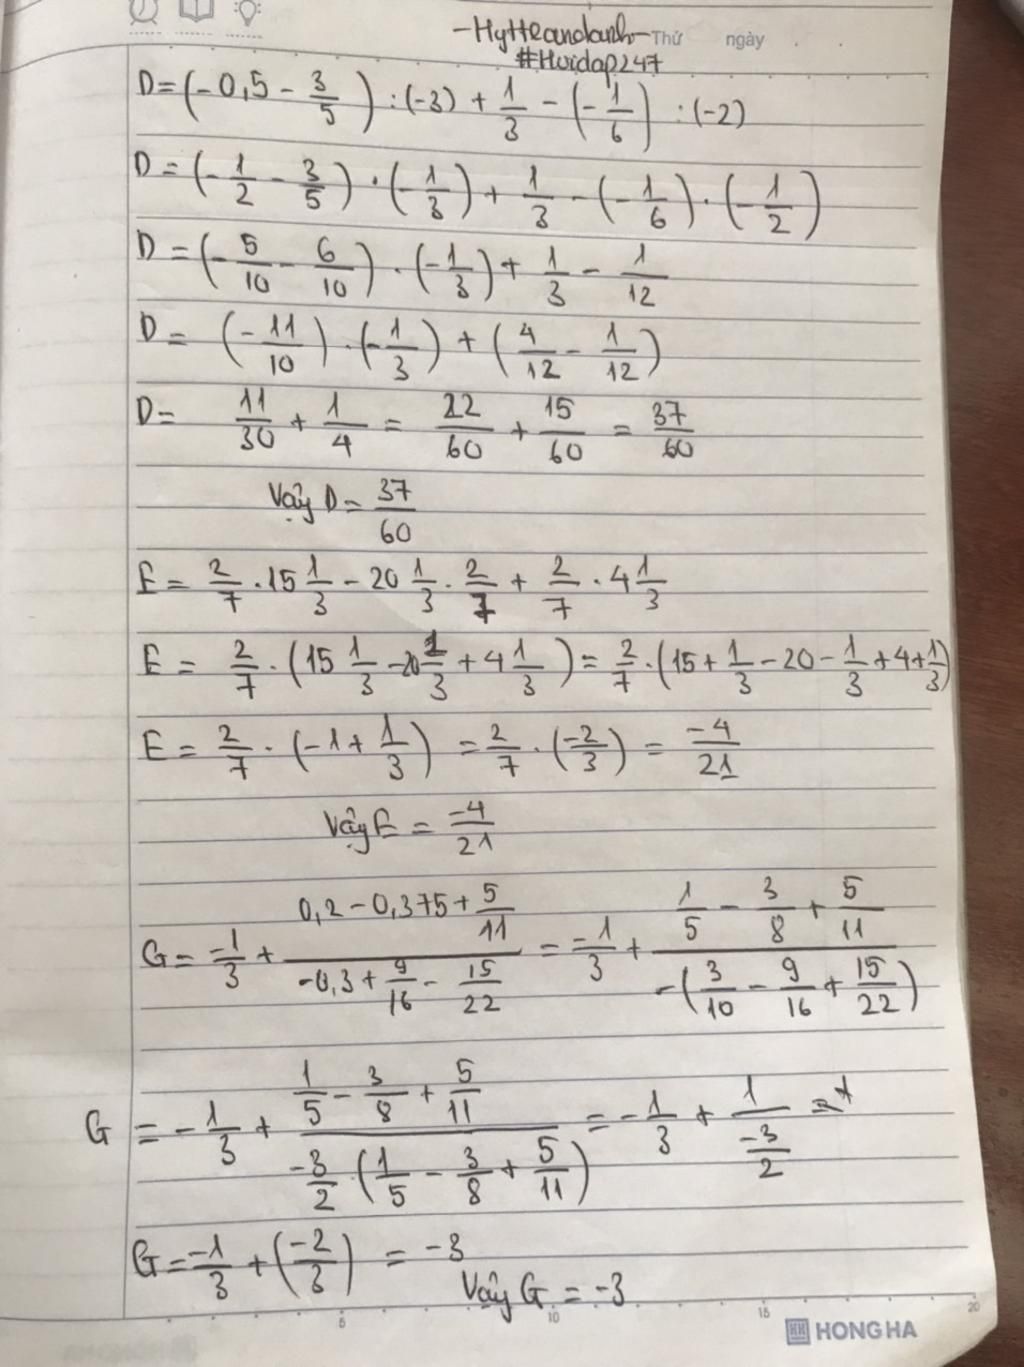 -Hytteandanh- Thứ ngày
#Hoidap247
D = (-0,5 - 3/5) : (-3) + 1/3 - (-1/6) : (-2)
D = (-1/2 - 3/5) · (-1/3) + 1/3 - (-1/6) · (-1/2)
D = (-5/10 - 6/10) · (-1/3) + 1/3 - 1/12
D = (-11/10) · (-1/3) + (4/12 - 1/12)
D = 11/30 + 1/4 = 22/60 + 15/60 = 37/60
Vậy D = 37/60
E = 2/7 · 15 1/3 - 20 1/3 · 2/7 + 2/7 · 4 1/3
E = 2/7 · (15 1/3 - 20 1/3 + 4 1/3) = 2/7 · (15 + 1/3 - 20 - 1/3 + 4 + 1/3)
E = 2/7 · (-1 + 1/3) = 2/7 · (-2/3) = -4/21
Vậy E = -4/21
G = -1/3 + (0,2 - 0,375 + 5/11)/(-0,3 + 9/16 - 15/22) = -1/3 + (1/5 - 3/8 + 5/11)/(-(3/10 - 9/16 + 15/22))
G = -1/3 + (1/5 - 3/8 + 5/11)/(-3/2 · (1/5 - 3/8 + 5/11)) = -1/3 + 1/(-3/2)
G = -1/3 + (-2/3) = -3
Vậy G = -3
5 10 15 20
HH HONG HA